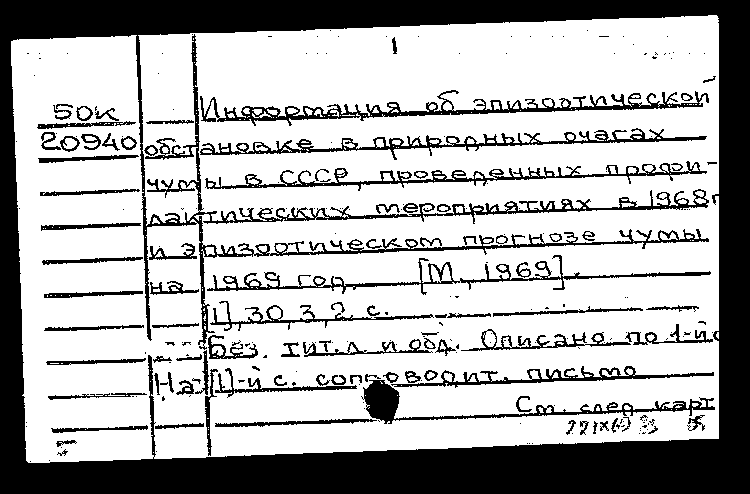 1
50к Информация об эпизоотической
20940 обстановке в природных очагах
чумы в СССР, проведенных профи-
лактических мероприятиях в 1968г
и эпизоотическом прогнозе чумы
на 1969 год. [М., 1969].
[1], 30, 3, 2 с.
Без тит. л и обл. Описано по 1-й с
На [1]-й с. сопроводит. письмо
См. след карт